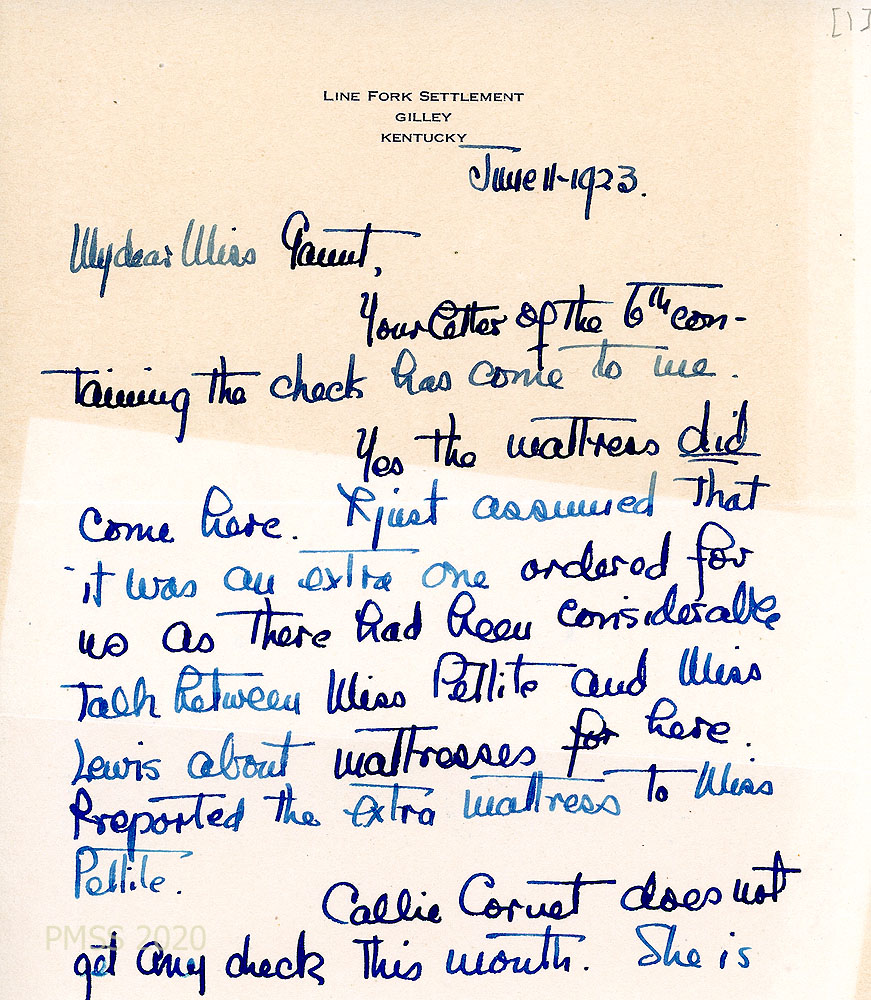 [1]
LINE FORK SETTLEMENT
GILLEY
KENTUCKY
June 11-1923.
My dear Miss Gaunt,
Your letter of the 6th con-
taining the check has come to me.
Yes the mattress did
come here. I just assumed that
it was an extra one ordered for
us as there had been considerable
talk between Miss Pettite and Miss
Lewis about mattresses for here.
I reported the extra mattress to Miss
Pettite.
Callie Cornet does not
get any check this month. She is
PMSS 2020